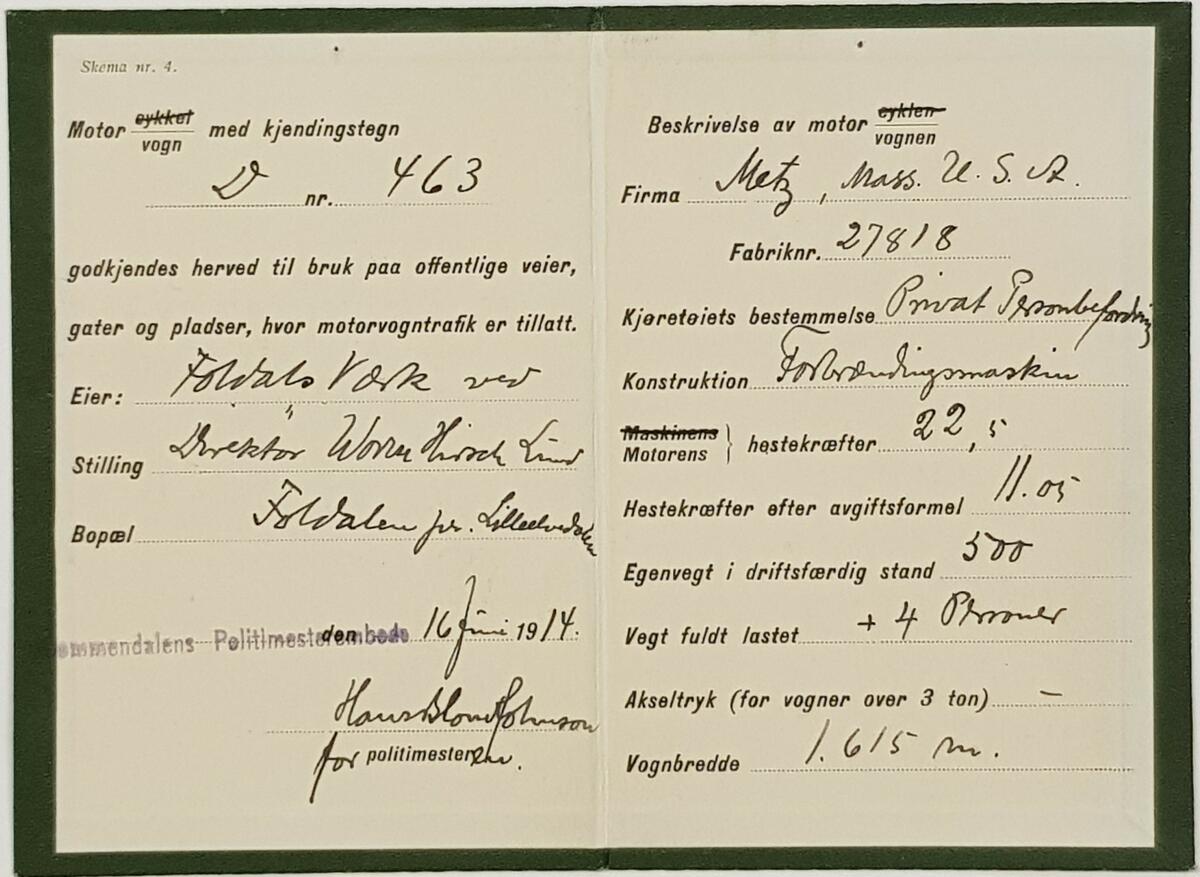 Skema nr. 4.
Motor cykkel med kjendingstegn
vogn
D nr. 463
godkjendes herved til bruk paa offentlige veier,
gater og pladser, hvor motorvogntrafik er tillatt.
Eier: Foldals Værk ved
Stilling Direktør Worm Hirsch Lund
Bopæl Foldalen pr. Lilleelvedalen
ommendalens Politimesterembede den 16 Juni 1914.
Hans Johnson
for politimesteren.
Beskrivelse av motor cyklen
vognen
Firma Metz, Mass. U. S. A.
Fabriknr. 27818
Kjøretøiets bestemmelse Privat Personbefordring
Konstruktion Forbrændingsmaskin
Maskinens
Motorens } hestekræfter 22,5
Hestekræfter efter avgiftsformel 11.05
Egenvegt i driftsfærdig stand 500
Vegt fuldt lastet + 4 Personer
Akseltryk (for vogner over 3 ton) —
Vognbredde 1.615 m.